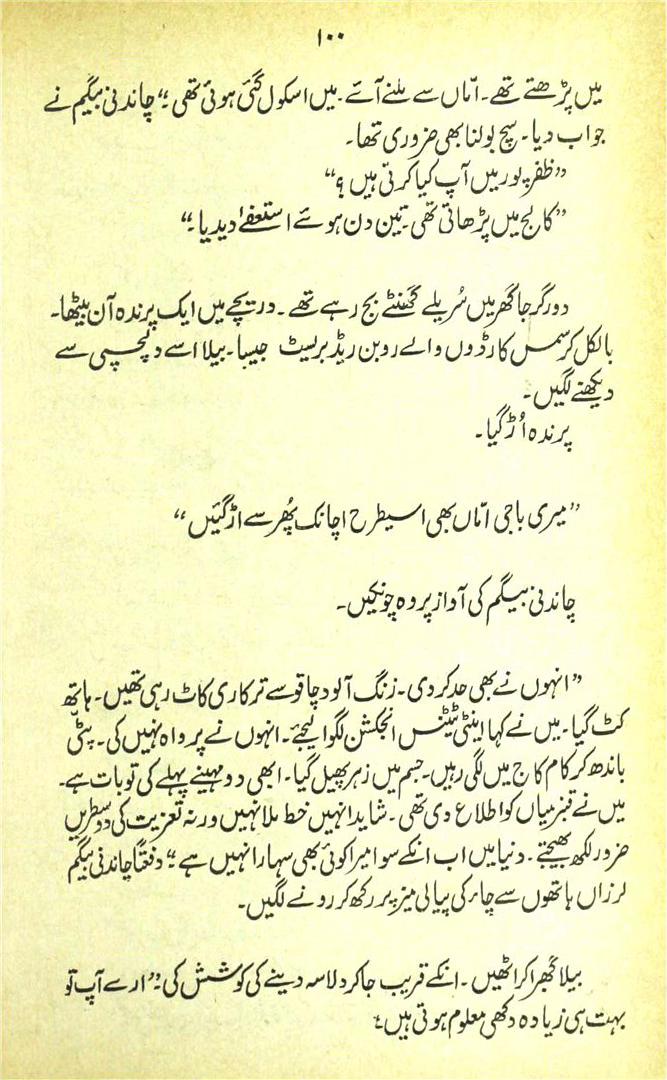 ۱۰۰
میں پڑھتے تھے۔ امّاں سے ملنے آئے۔ میں اسکول گئی ہوئی تھی۔“ چاندنی بیگم نے
جواب دیا۔ سچ بولنا بھی ضروری تھا۔
”ظفر پور میں آپ کیا کرتی ہیں؟“
”کالج میں پڑھاتی تھی۔ تین دن ہوئے استعفےٰ دیدیا۔“
دور گرجا گھر میں سُریلے گھنٹے بج رہے تھے۔ دریچے میں ایک پرندہ آن بیٹھا۔
بالکل کرسمس کارڈوں والے روبن ریڈ بریسٹ جیسا۔ بیلا اسے دلچسپی سے
دیکھنے لگیں۔
پرندہ اُڑ گیا۔
”میری باجی امّاں بھی اسیطرح اچانک پھُر سے اڑ گئیں“
چاندنی بیگم کی آواز پر وہ چونکیں۔
”انہوں نے بھی حد کر دی۔ زنگ آلود چاقو سے ترکاری کاٹ رہی تھیں۔ ہاتھ
کٹ گیا۔ میں نے کہا اینٹی ٹیٹنس انجکشن لگوا لیجئے۔ انہوں نے پرواہ نہیں کی۔ پٹّی
باندھ کر کام کاج میں لگی رہیں۔ جسم میں زہر پھیل گیا۔ ابھی دو مہینے پہلے کی تو بات ہے۔
میں نے قنبر میاں کو اطلاع دی تھی۔ شاید انہیں خط ملا نہیں ورنہ تعزیت کی دو سطریں
ضرور لکھ بھیجتے۔ دنیا میں اب انکے سوا میرا کوئی بھی سہارا نہیں ہے۔“ دفعتاً چاندنی بیگم
لرزاں ہاتھوں سے چاء کی پیالی میز پر رکھ کر رونے لگیں۔
بیلا گھبرا کر اٹھیں۔ انکے قریب جا کر دلاسہ دینے کی کوشش کی۔ ”ارے آپ تو
بہت ہی زیادہ دکھی معلوم ہوتی ہیں۔“